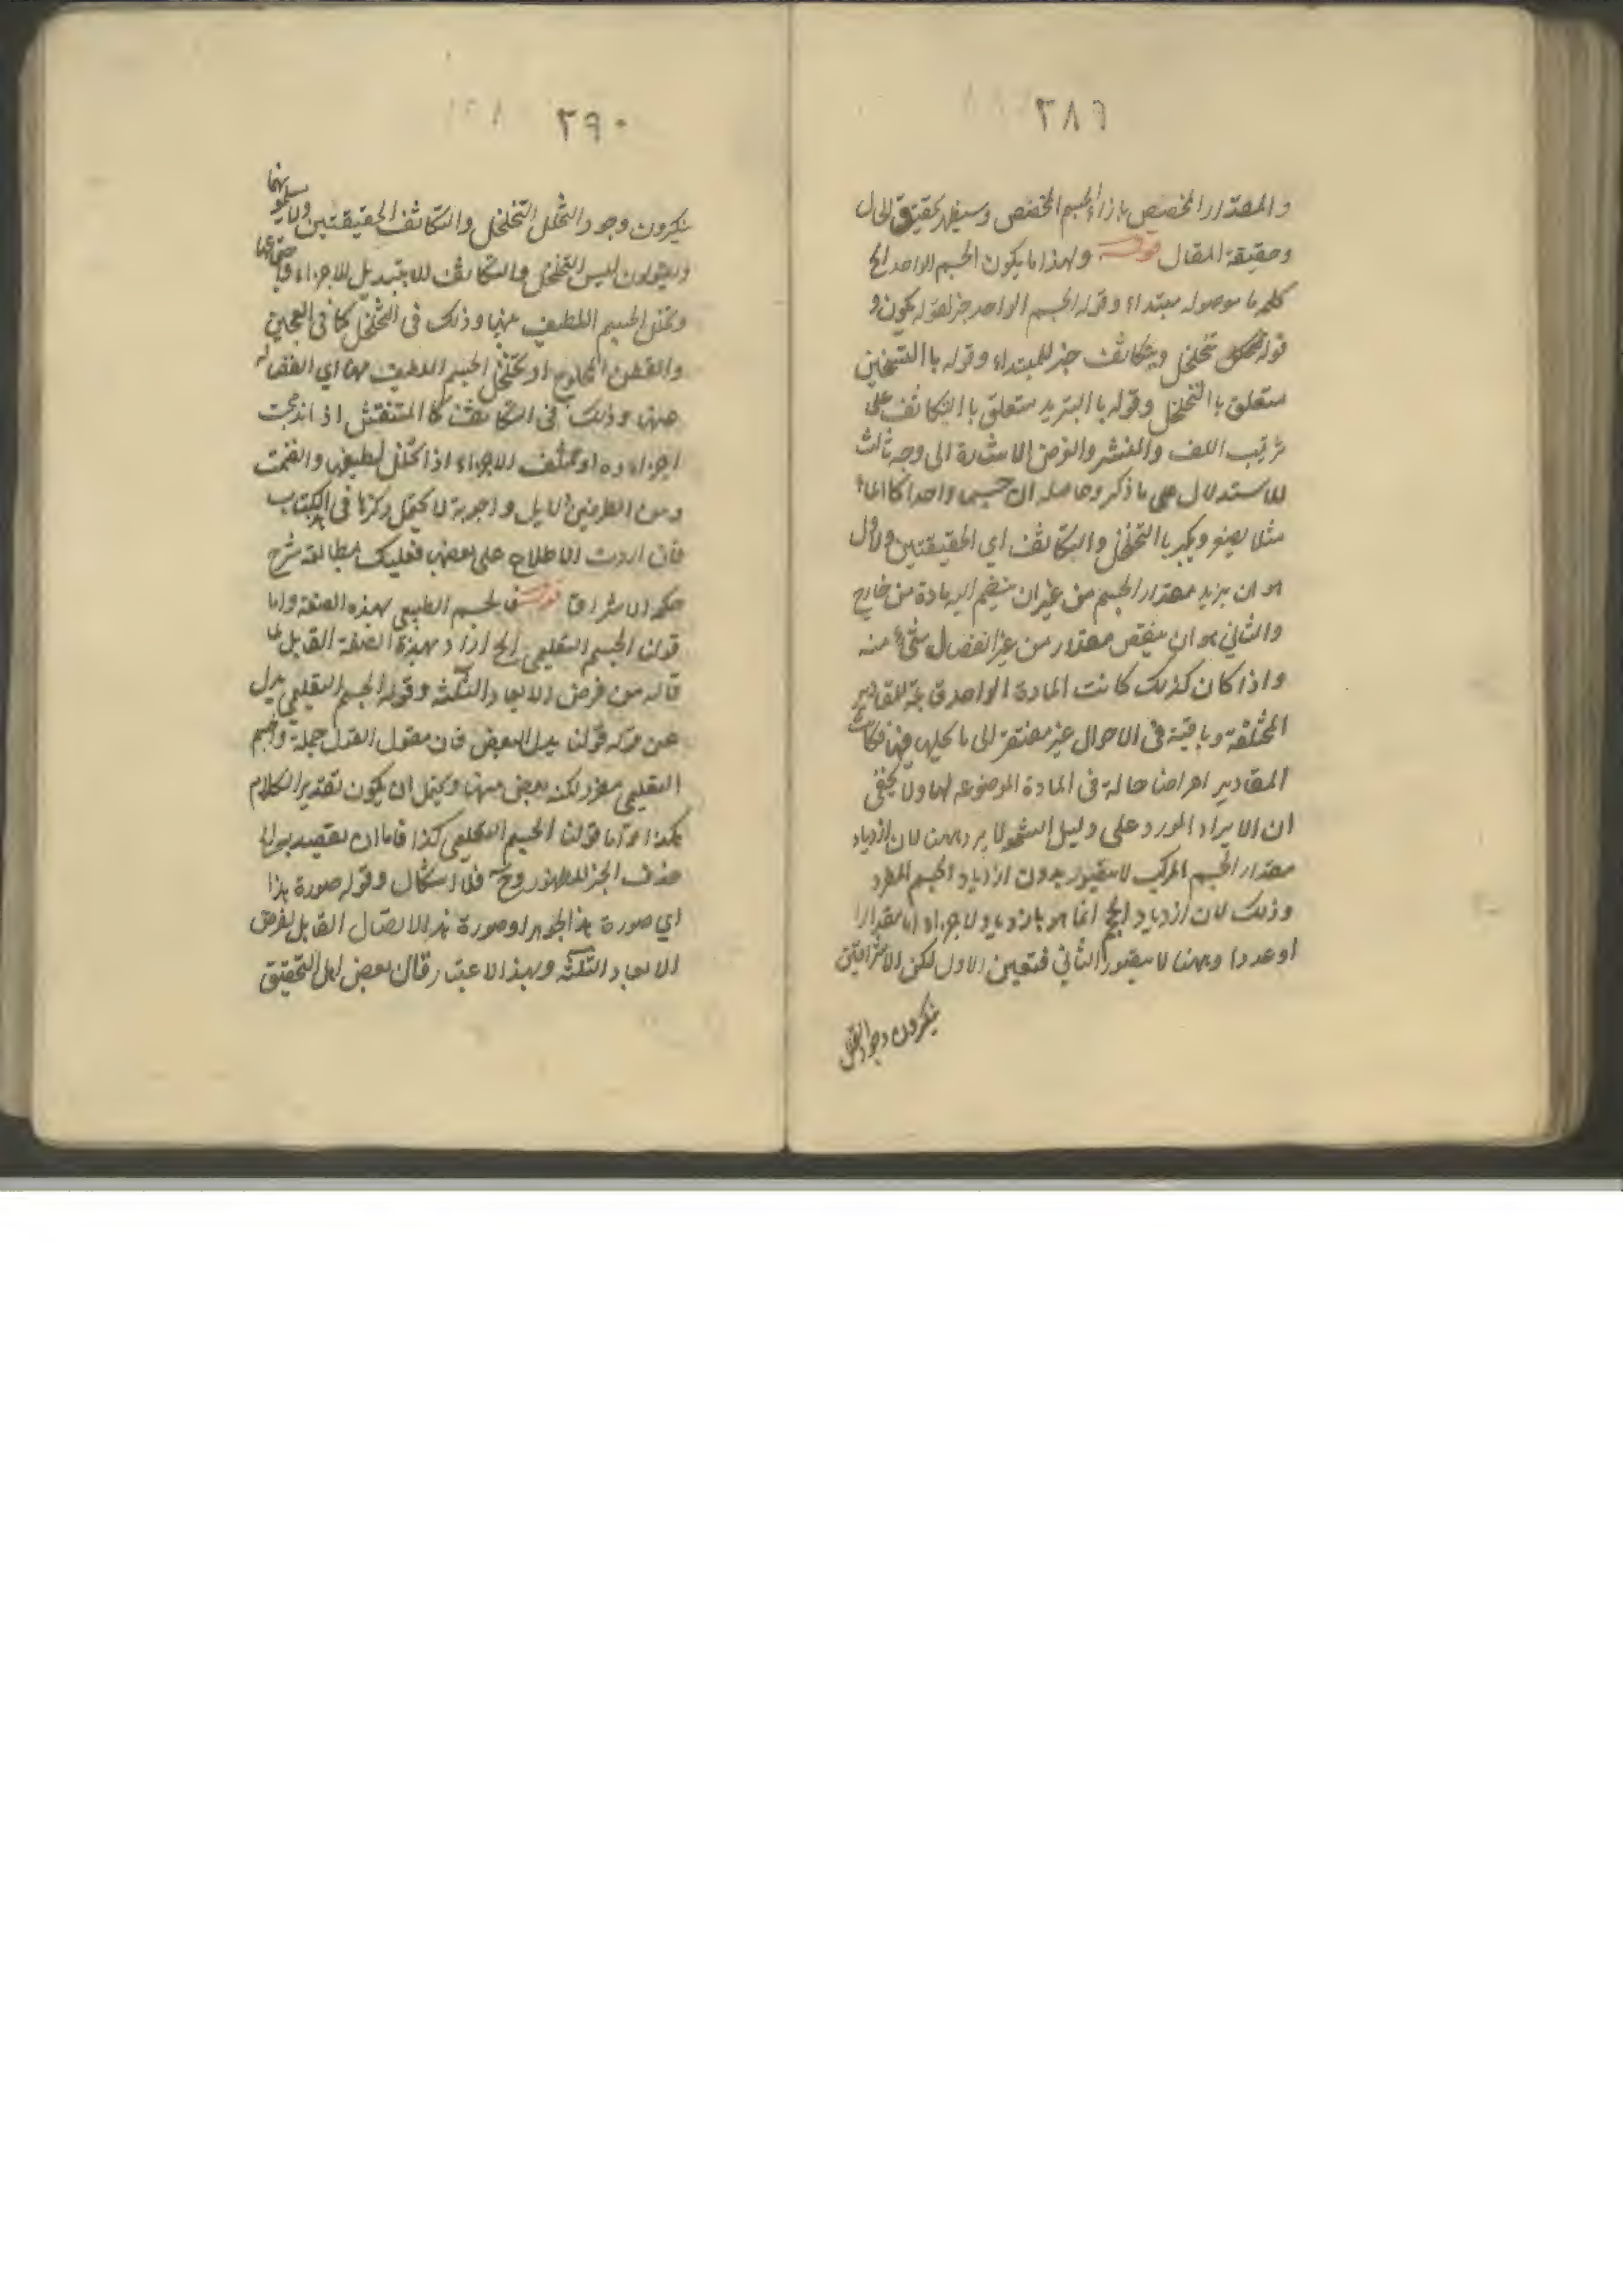 ٣٨٩
والمقدار المخصص بازاء الجسم المخصص وسيظهر تحقيق الحال
وحقيقة المقال قوله ولهذا ما يكون الجسم الواحد الخ
كلمة ما موصوله مبتداء وقوله الجسم الواحد خبر لقوله يكون و
قوله يتخلخل ويتكاثف خبر للمبتداء وقوله باالتسخين
متعلق باالتخلخل وقوله باالتبريد متعلق باالتكاثف على
ترتيب اللف والنشر والغرض الاشارة الى وجه ثالث
للاستدلال على ما ذكر وحاصله ان جسما واحدا كالماء
مثلا يصغر ويكبر باالتخلخل والتكاثف اي الحقيقتين والاول
هو ان يزيد مقدار الجسم من غير ان ينضم اليه مادة من خارج
والثاني هو ان ينقص مقداره من غير انفصال شيء منه
واذا كان كذلك كانت المادة الواحدة للمقادير
المختلفة وباقية في الاحوال غير مفتقرة الى ما يحلها فيها فكانت
المقادير اعراضا حالة في المادة الموضوعه لها ولا يخفى
ان الايراد المورد على دليل الشمعة لا يرد ههنا لان ازدياد
مقدار الجسم المركب لا يتصور بدون ازدياد الجسم المفرد
وذلك لان ازدياد الحجم انما هو بازدياد الاجزاء اما مقدارا
او عددا وههنا لا يتصور الثاني فتعين الاول لكن الاشراقيين
ينكرون وجود التخلخل
٣٩٠
ينكرون وجود التخلخل والتكاثف الحقيقتين ولا يسلمونهما
ويقولون ليس التخلخل والتكاثف الا بتبديل الاجزاء و
وتخلل الجسم اللطيف بينها وذلك في التخلخل كما في العجين
والقطن المحلوج او تخلل الجسم اللطيف اي انفصاله
عنها وذلك في التكاثف كما المتنفش اذا اندمجت
اجزاءه او الاجزاء اذا تخلل لطيفها وانضمت
ومن الطرفين دلايل واجوبة لا يحتمل ذكرها في الكتاب
فان اردت الاطلاع على بعضها فعليك بمطالعة شرح
حكمة الاشراق قوله فالجسم الطبيعي بهذه الصفة واما
قولنا الجسم التعليمي الخ اراد بهذه الصفة القابل لما
قاله من فرض الابعاد الثلثة وقوله الجسم التعليمي بدل
عن قوله قولنا بدل البعض فان مقول القول جملة والجسم
التعليمي مفرد لكنه بعض منها ويحتمل ان يكون تقدير الكلام
هكذا واما قولنا الجسم التعليمي كذا فاما ان نقصد به الخ
حذف الخبر للظهور وح فلا اشكال وقوله صورة هذا
اي صورة هذا الجوهر او صورة هذا الاتصال القابل لفرض
الابعاد الثلثة وبهذا الاعتبار قال بعض اهل التحقيق